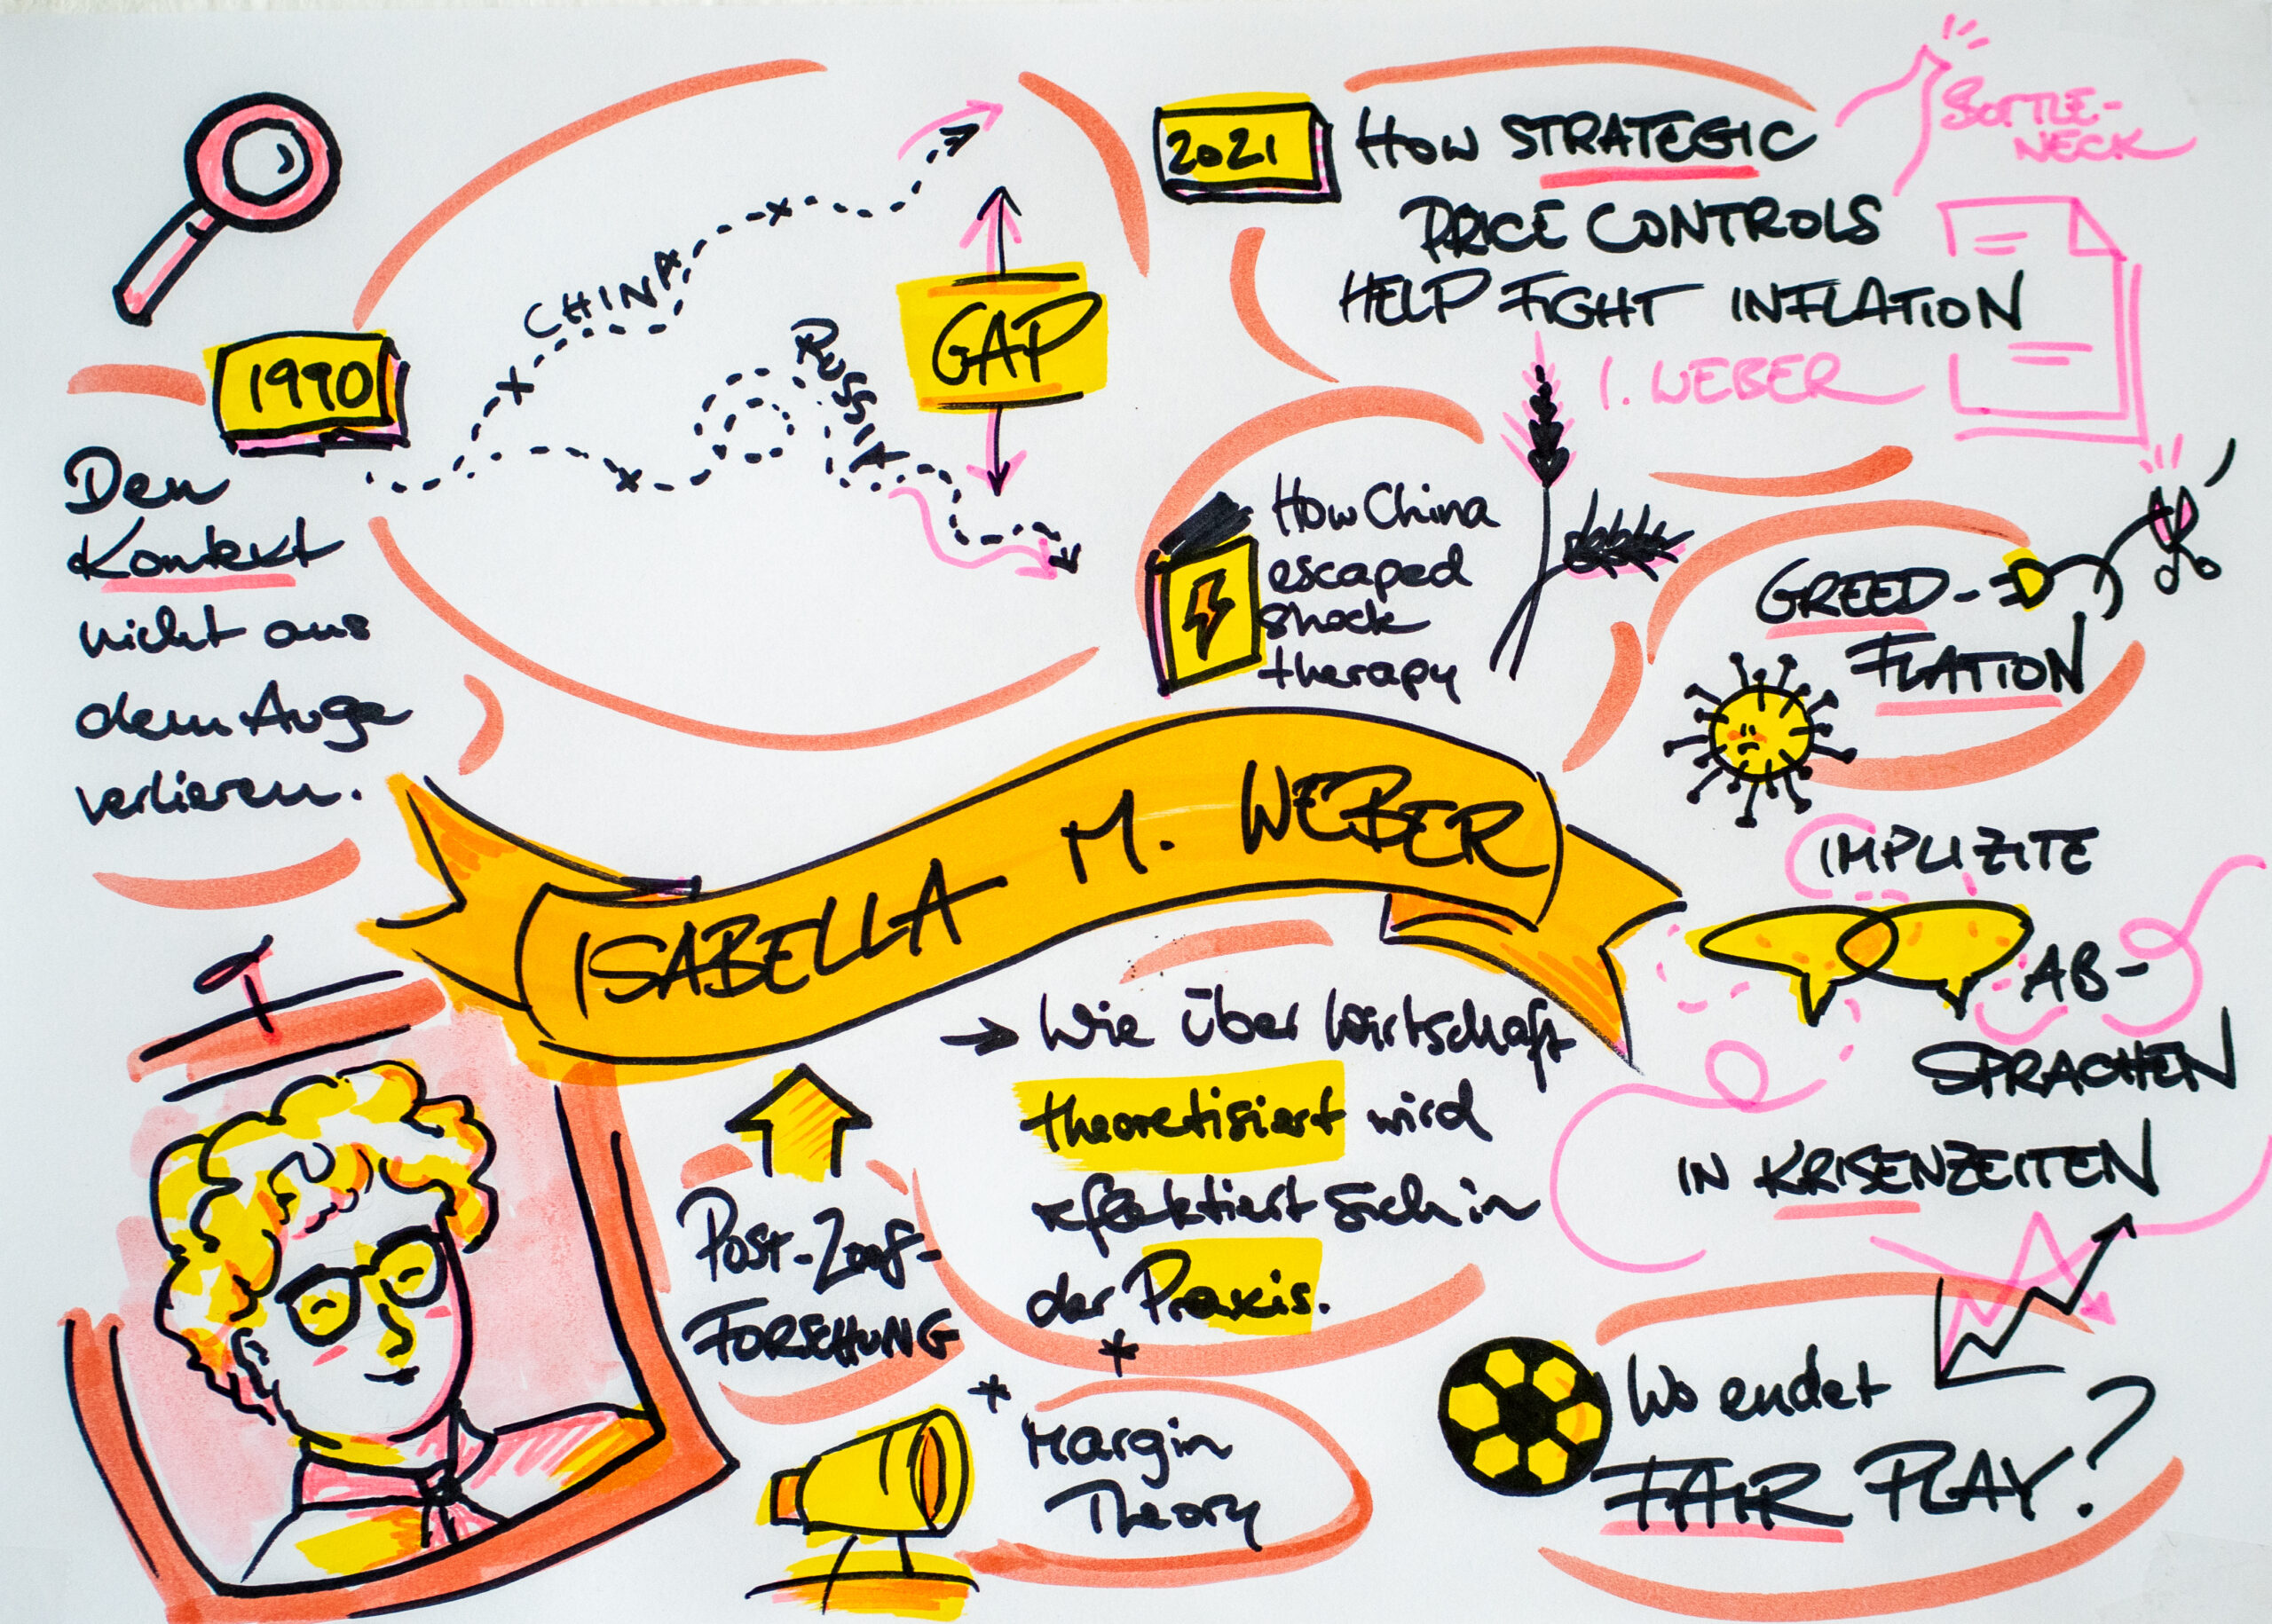 1990
Den
Kontext
nicht aus
dem Auge
verlieren.
CHINA
RUSSIA
GAP
2021
HOW STRATEGIC
PRICE CONTROLS
HELP FIGHT INFLATION
I. WEBER
BOTTLE-
NECK
How China
escaped
shock
therapy
GREED-
FLATION
ISABELLA M. WEBER
IMPLIZITE
AB-
SPRACHEN
IN KRISENZEITEN
→ Wie über Wirtschaft
theoretisiert wird
reflektiert sich in
der Praxis.
Post-
FORSCHUNG
Margin
Theory
Wo endet
FAIR PLAY?